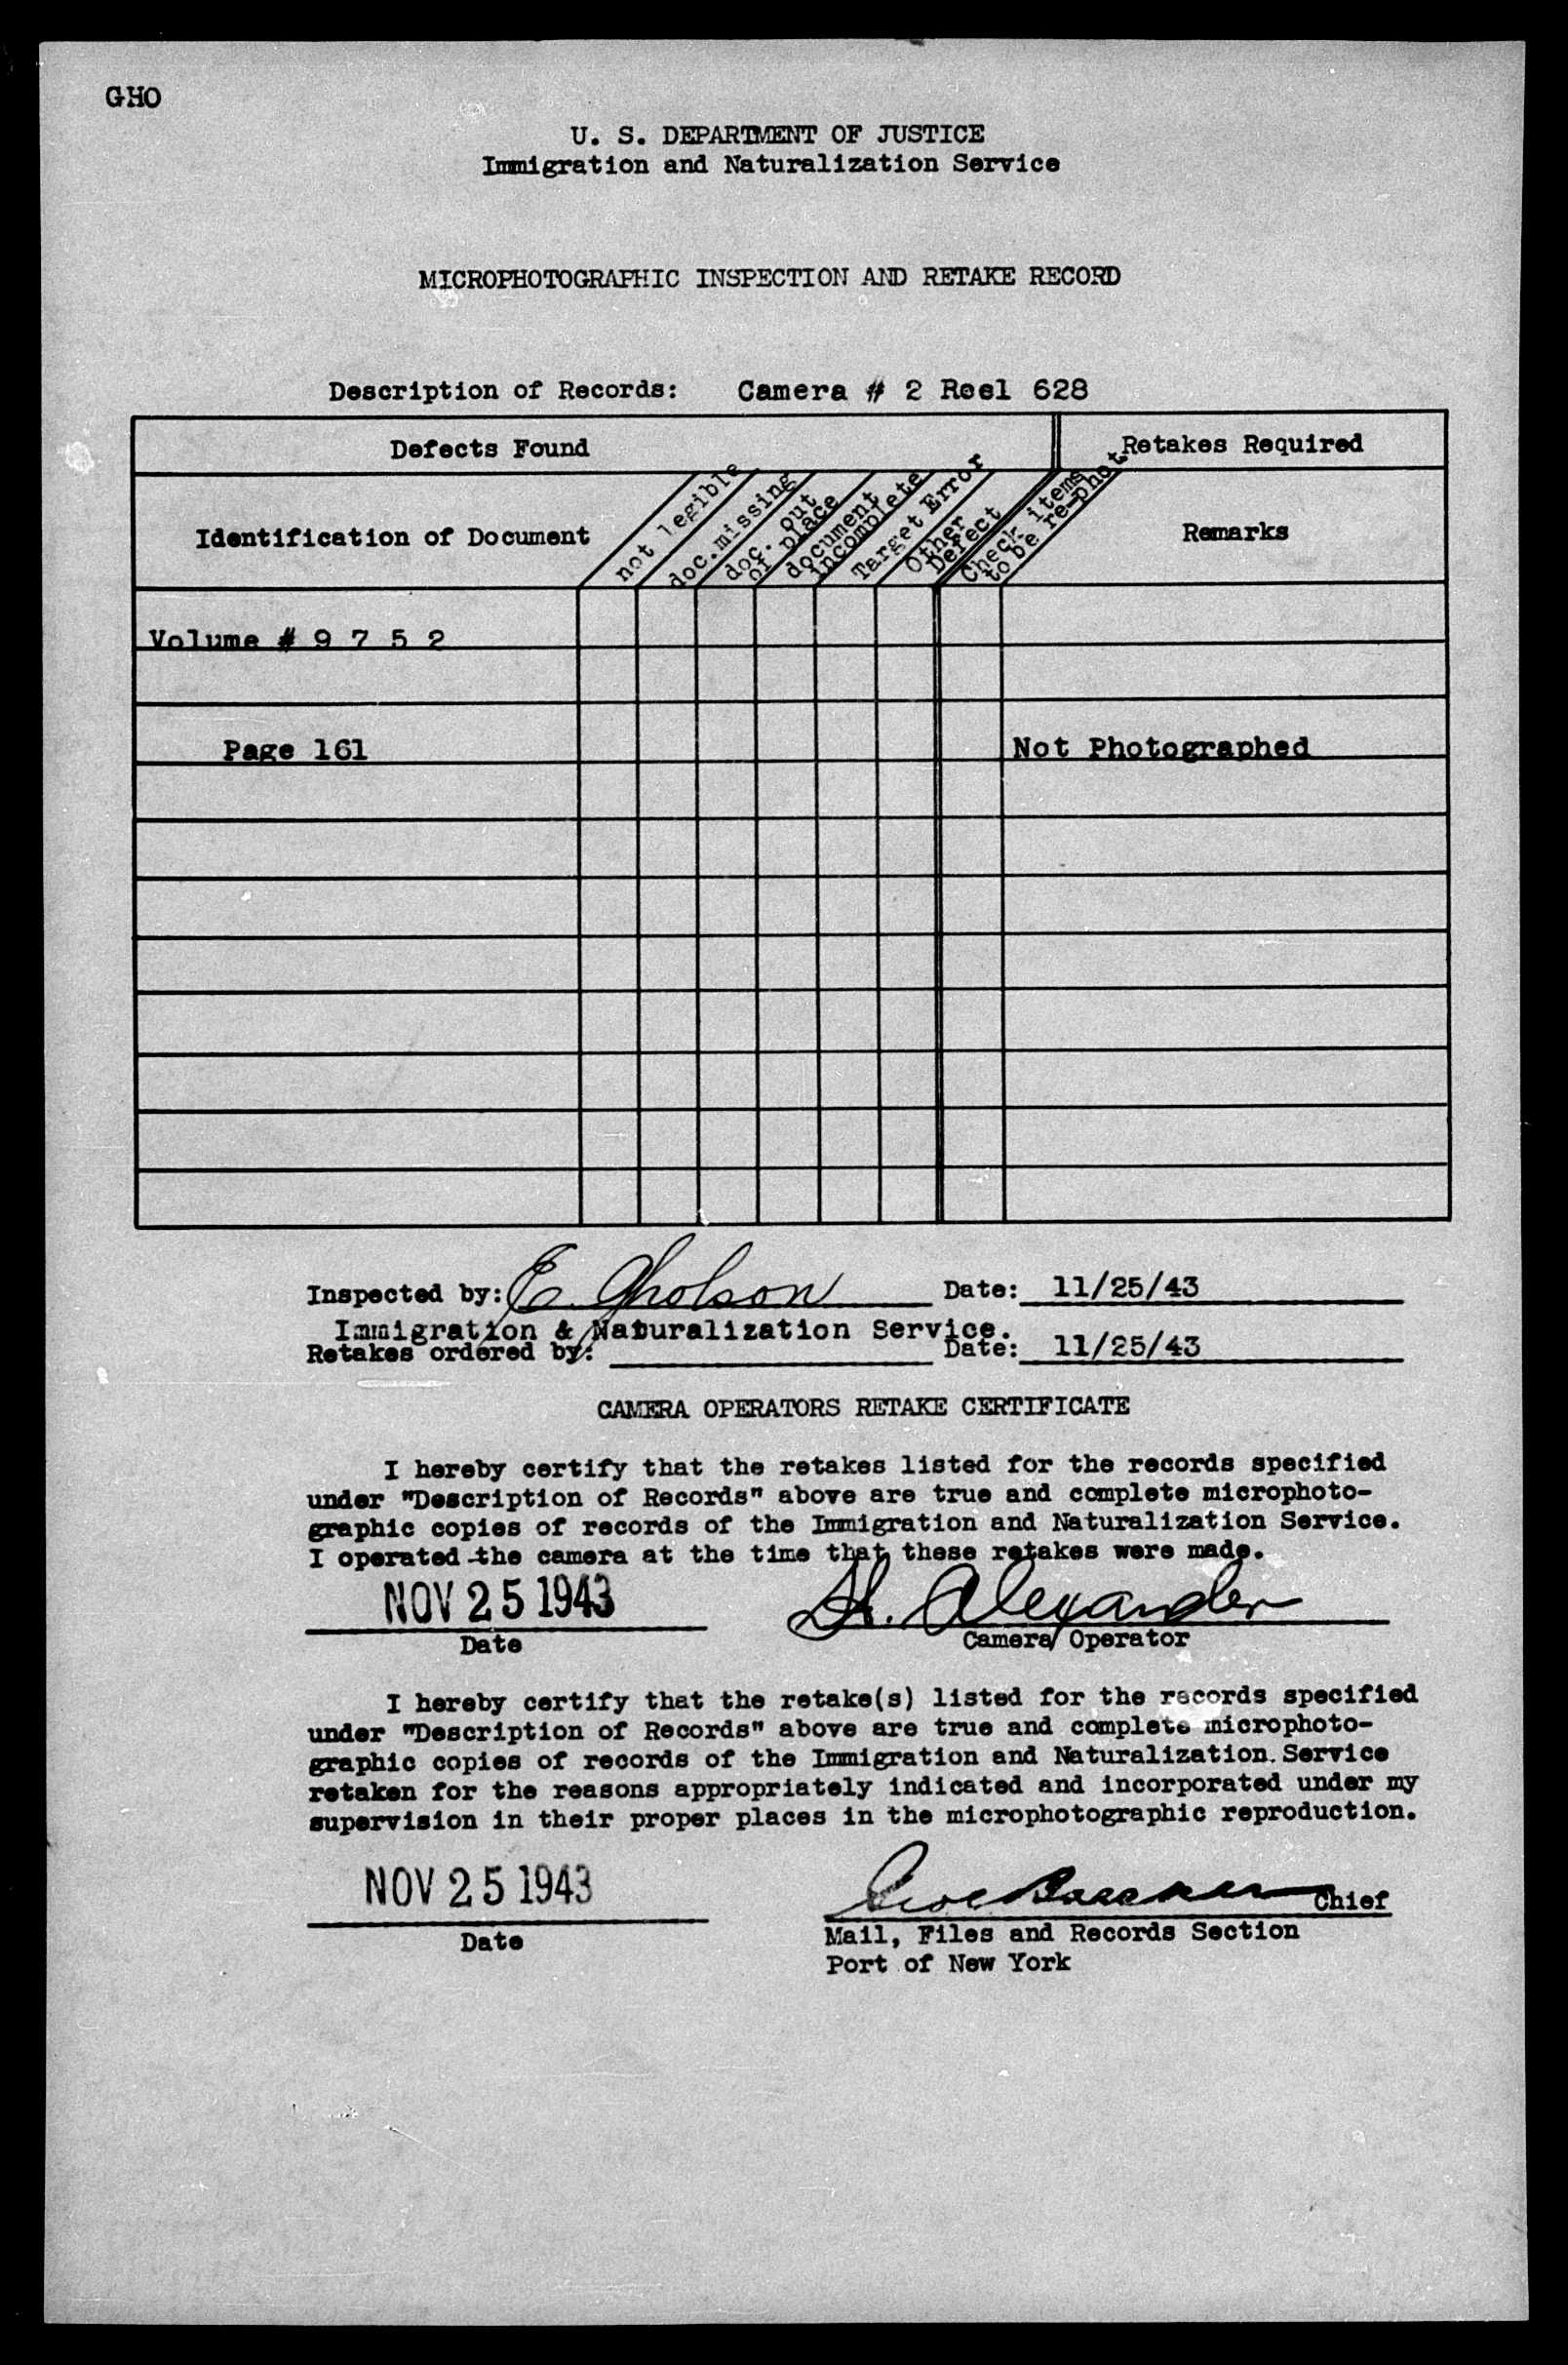 GHO
U. S. DEPARTMENT OF JUSTICE
Immigration and Naturalization Service
MICROPHOTOGRAPHIC INSPECTION AND RETAKE RECORD
Description of Records: Camera # 2 Reel 628
Defects Found
Retakes Required
Identification of Document
not legible
doc.missing
doc. out
of place
document
incomplete
Target Error
Other
Defect
Check items
to be re-phot
Remarks
Volume # 9 7 5 2
Page 161 Not Photographed
Inspected by: E. Gholson Date: 11/25/43
Immigration & Naturalization Service.
Retakes ordered by: Date: 11/25/43
CAMERA OPERATORS RETAKE CERTIFICATE
I hereby certify that the retakes listed for the records specified
under "Description of Records" above are true and complete microphoto-
graphic copies of records of the Immigration and Naturalization Service.
I operated the camera at the time that these retakes were made.
NOV 25 1943 H. Alexander
Date Camera Operator
I hereby certify that the retake(s) listed for the records specified
under "Description of Records" above are true and complete microphoto-
graphic copies of records of the Immigration and Naturalization. Service
retaken for the reasons appropriately indicated and incorporated under my
supervision in their proper places in the microphotographic reproduction.
NOV 25 1943 Chief
Date
Mail, Files and Records Section
Port of New York